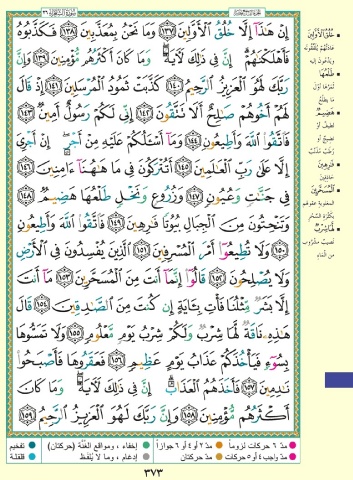 سُورَةُ الشُّعَرَاءِ ٢٦
إِنْ هَٰذَآ إِلَّا خُلُقُ ٱلْأَوَّلِينَ ١٣٧ وَمَا نَحْنُ بِمُعَذَّبِينَ ١٣٨ فَكَذَّبُوهُ
فَأَهْلَكْنَٰهُمْ إِنَّ فِى ذَٰلِكَ لَءَايَةً وَمَا كَانَ أَكْثَرُهُم مُّؤْمِنِينَ ١٣٩ وَإِنَّ
رَبَّكَ لَهُوَ ٱلْعَزِيزُ ٱلرَّحِيمُ ١٤٠ كَذَّبَتْ ثَمُودُ ٱلْمُرْسَلِينَ ١٤١ إِذْ قَالَ
لَهُمْ أَخُوهُمْ صَٰلِحٌ أَلَا تَتَّقُونَ ١٤٢ إِنِّى لَكُمْ رَسُولٌ أَمِينٌ ١٤٣
فَٱتَّقُوا۟ ٱللَّهَ وَأَطِيعُونِ ١٤٤ وَمَآ أَسْـَٔلُكُمْ عَلَيْهِ مِنْ أَجْرٍ إِنْ أَجْرِىَ
إِلَّا عَلَىٰ رَبِّ ٱلْعَٰلَمِينَ ١٤٥ أَتُتْرَكُونَ فِى مَا هَٰهُنَآ ءَامِنِينَ ١٤٦
فِى جَنَّٰتٍ وَعُيُونٍ ١٤٧ وَزُرُوعٍ وَنَخْلٍ طَلْعُهَا هَضِيمٌ ١٤٨
وَتَنْحِتُونَ مِنَ ٱلْجِبَالِ بُيُوتًا فَٰرِهِينَ ١٤٩ فَٱتَّقُوا۟ ٱللَّهَ وَأَطِيعُونِ
١٥٠ وَلَا تُطِيعُوٓا۟ أَمْرَ ٱلْمُسْرِفِينَ ١٥١ ٱلَّذِينَ يُفْسِدُونَ فِى ٱلْأَرْضِ
وَلَا يُصْلِحُونَ ١٥٢ قَالُوٓا۟ إِنَّمَآ أَنتَ مِنَ ٱلْمُسَحَّرِينَ ١٥٣ مَآ أَنتَ
إِلَّا بَشَرٌ مِّثْلُنَا فَأْتِ بِـَٔايَةٍ إِن كُنتَ مِنَ ٱلصَّٰدِقِينَ ١٥٤ قَالَ
هَٰذِهِۦ نَاقَةٌ لَّهَا شِرْبٌ وَلَكُمْ شِرْبُ يَوْمٍ مَّعْلُومٍ ١٥٥ وَلَا تَمَسُّوهَا
بِسُوٓءٍ فَيَأْخُذَكُمْ عَذَابُ يَوْمٍ عَظِيمٍ ١٥٦ فَعَقَرُوهَا فَأَصْبَحُوا۟
نَٰدِمِينَ ١٥٧ فَأَخَذَهُمُ ٱلْعَذَابُ إِنَّ فِى ذَٰلِكَ لَءَايَةً وَمَا كَانَ
أَكْثَرُهُم مُّؤْمِنِينَ ١٥٨ وَإِنَّ رَبَّكَ لَهُوَ ٱلْعَزِيزُ ٱلرَّحِيمُ ١٥٩
خُلُقُ الأَوَّلِينَ
طَلْعُهَا
هَضِيمٌ
فَارِهِينَ
الْمُسَحَّرِينَ
لَهَا شِرْبٌ
نصيب مشروب
من الماء
مدّ ٦ حركات لزوماً مدّ ٢ أو ٤ أو ٦ جوازاً إخفاء، ومواقع الغنّة (حركتان) تفخيم
مدّ واجب ٤ أو ٥ حركات مدّ حركتان إدغام، وما لا يُلفظ قلقلة
٣٧٣